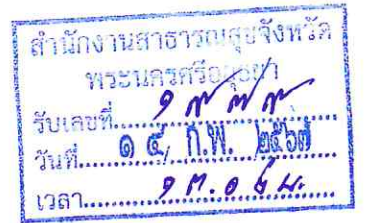 สำนักงานสาธารณสุขจังหวัด
พระนครศรีอยุธยา
รับเลขที่
วันที่ ๑๕ ก.พ. ๒๕๖๗
เวลา ๑๓.๐๖ น.